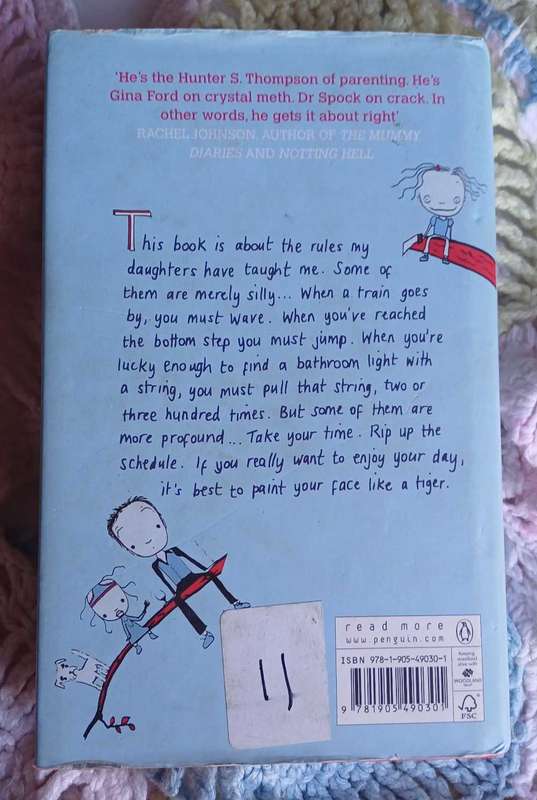 'He's the Hunter S. Thompson of parenting. He's
Gina Ford on crystal meth. Dr Spock on crack. In
other words, he gets it about right'
RACHEL JOHNSON, AUTHOR OF THE MUMMY
DIARIES AND NOTTING HELL
This book is about the rules my
daughters have taught me. Some of
them are merely silly... When a train goes
by, you must wave. When you've reached
the bottom step you must jump. When you're
lucky enough to find a bathroom light with
a string, you must pull that string, two or
three hundred times. But some of them are
more profound... Take your time. Rip up the
schedule. If you really want to enjoy your day,
it's best to paint your face like a tiger.
11
read more
www.penguin.com
ISBN 978-1-905-49030-1
9 781905 490301
Keeping
woodland
alive with
WOODLAND
FSC